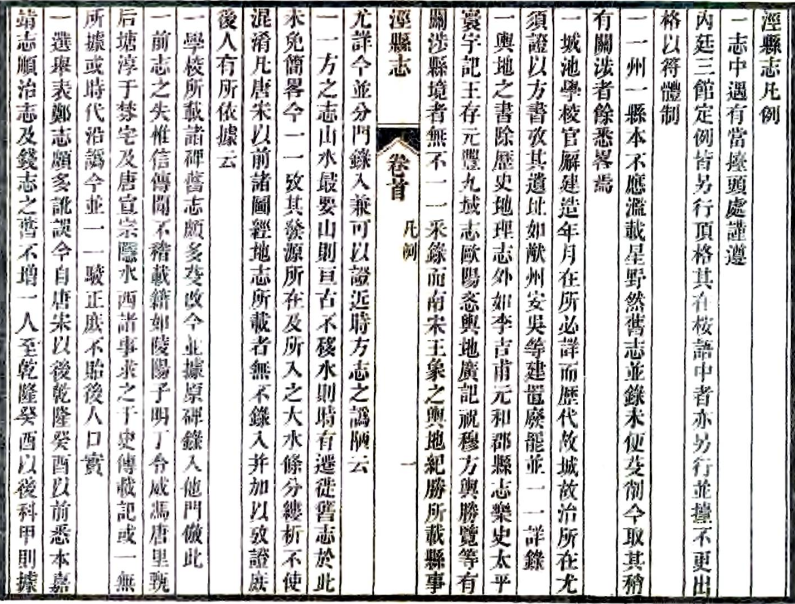 涇縣志凡例
一志中遇有當擡頭處謹遵
內廷三館定例皆另行頂格其在桉語中者亦另行並擡不更出
格以符體制
一一州一縣本不應濫載星野然舊志並錄未便芟削今取其稍
有關涉者餘悉畧焉
一城池學校官廨建造年月在所必詳而歷代故城故治所在尤
須證以方書攷其遺址如猷州安吳等建置廢罷並一一詳錄
一輿地之書除歷史地理志外如李吉甫元和郡縣志樂史太平
寰宇記王存元豐九域志歐陽忞輿地廣記祝穆方輿勝覽等有
關涉縣境者無不一一采錄而南宋王象之輿地紀勝所載縣事
涇縣志 卷首 凡例 一
尤詳今並分門錄入兼可以證近時方志之譌陋云
一一方之志山水最要山則亘古不移水則時有遷徙舊志於此
未免簡畧今一一攷其發源所在及所入之大水條分縷析不使
混淆凡唐宋以前諸圖經地志所載者無不錄入并加以攷證庶
後人有所依據云
一學校所載諸碑舊志頗多芟改今並據原碑錄入他門倣此
一前志之失惟信傳聞不稽載籍如陵陽子明丁令威馮唐里甄
后塘淳于棼宅及唐宣宗隱水西諸事求之于史傳載記或一無
所據或時代沿譌今並一一駮正庶不貽後人口實
一選舉表鄭志頗多訛誤今自唐宋以後乾隆癸酉以前悉本嘉
靖志順治志及錢志之舊不增一人至乾隆癸酉以後科甲則據